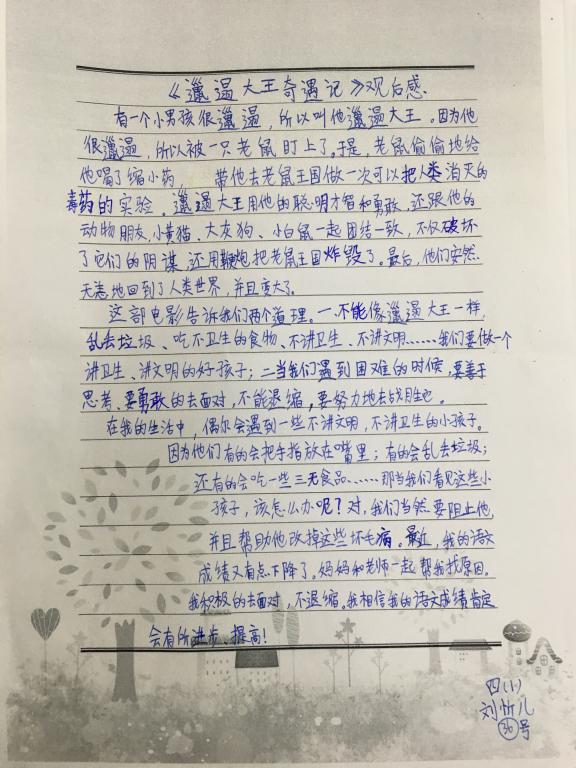 《邋遢大王奇遇记》观后感.
有一个小男孩很邋遢，所以叫他邋遢大王。因为他
很邋遢，所以被一只老鼠盯上了。于是，老鼠偷偷地给
他喝了缩小药 带他去老鼠王国做一次可以把人类消灭的
毒药的实验。邋遢大王用他的聪明才智和勇敢，还跟他的
动物朋友，小黄猫、大灰狗、小白鼠一起团结一致，不仅破坏
了它们的阴谋，还用鞭炮把老鼠王国炸毁了。最后，他们安然
无恙地回到了人类世界，并且变大了。
这部电影告诉我们两个道理。一、不能像邋遢大王一样，
乱丢垃圾、吃不卫生的食物、不讲卫生、不讲文明……我们要做一个
讲卫生、讲文明的好孩子；二当我们遇到困难的时候，要善于
思考、要勇敢的去面对，不能退缩，要努力地去战胜它。
在我的生活中，偶尔会遇到一些不讲文明，不讲卫生的小孩子。
因为他们有的会把手指放在嘴里；有的会乱丢垃圾；
还有的会吃一些三无食品……那当我们看见这些小
孩子，该怎么办呢？对，我们当然要阻止他，
并且帮助他改掉这些坏毛病。最近，我的语文
成绩又有点下降了。妈妈和老师一起帮我找原因。
我积极的去面对，不退缩。我相信我的语文成绩肯定
会有所进步、提高！
四(1)
刘忻儿
36号